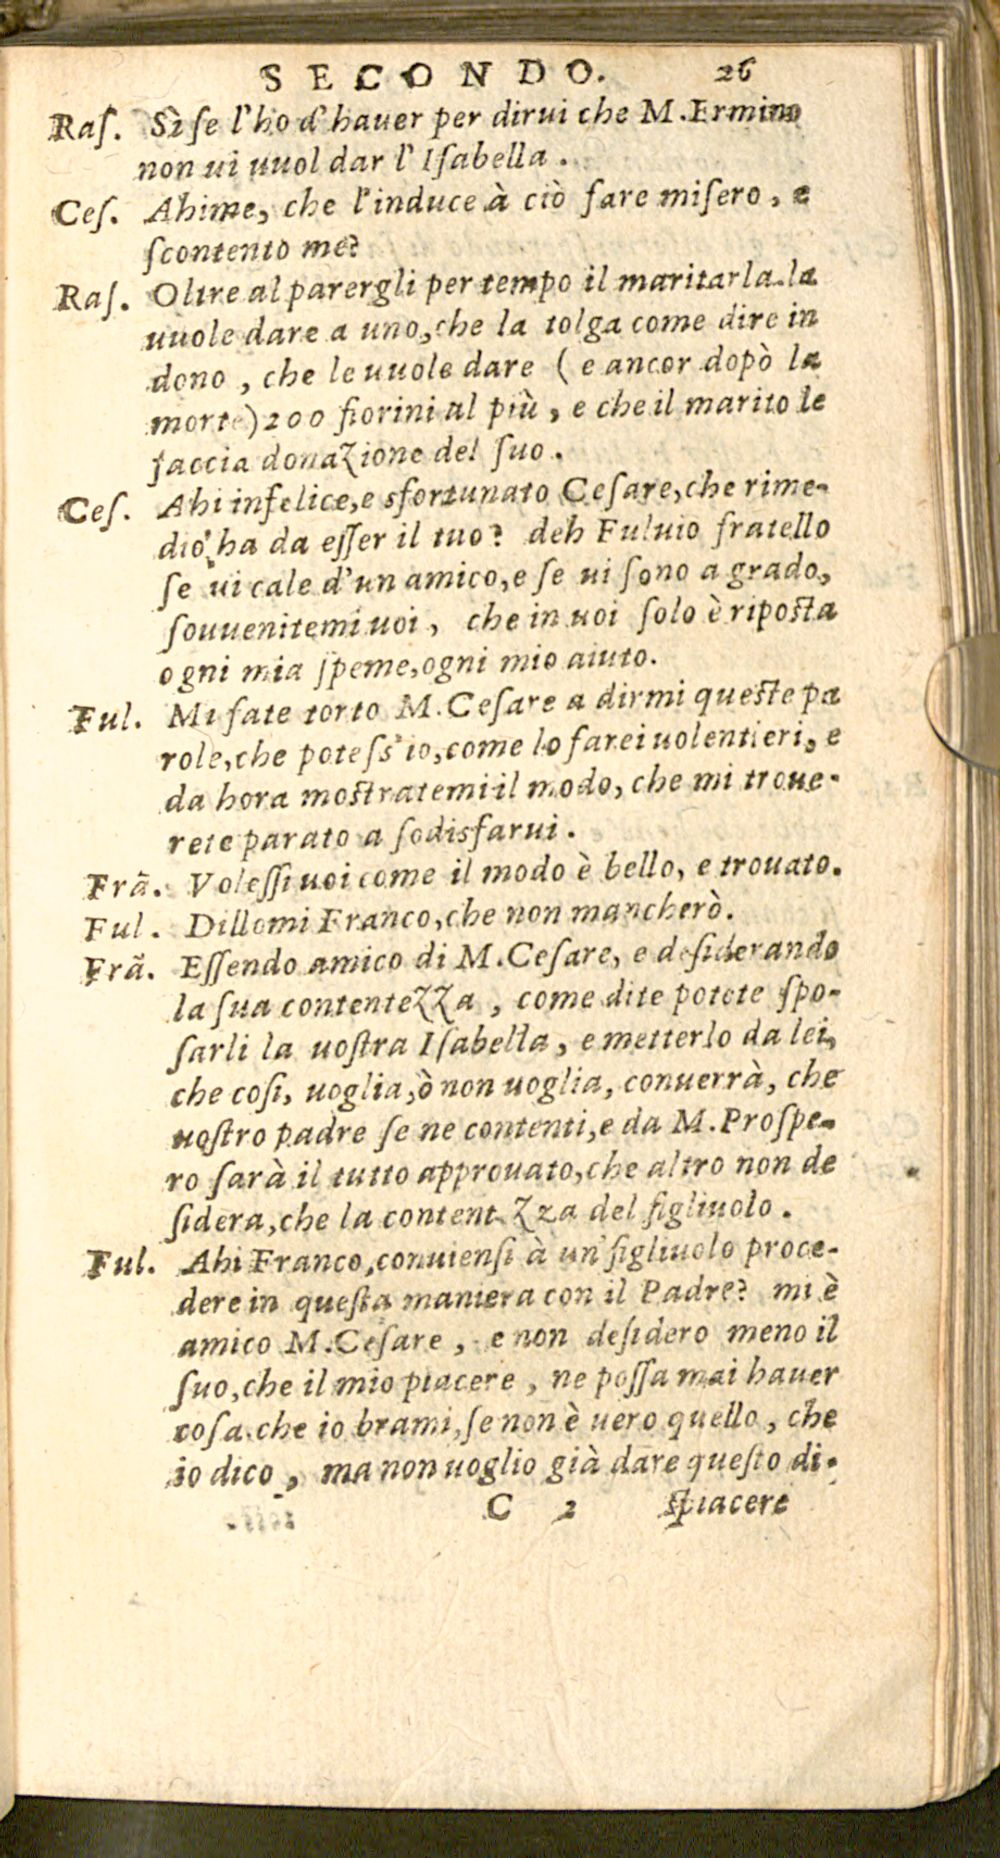 SECONDO. 26
Raſ. Sì ſe l'ho d'hauer per dirui che M.Ermino
non ui uuol dar l'Iſabella.
Ceſ. Ahime, che l'induce à ciò fare miſero, e
ſcontento me?
Raſ. Oltre al parergli per tempo il maritarla.la
uuole dare a uno,che la tolga come dire in
dono, che le uuole dare (e ancor dopò la
morte) 200 fiorini al più, e che il marito le
faccia donazione del ſuo.
Ceſ. Ahi infelice,e sfortunato Ceſare,che rime-
dio ha da eſſer il tuo? deh Fuluio fratello
ſe ui cale d'un amico,e ſe ui ſono a grado,
ſouuenitemi uoi, che in uoi ſolo è ripoſta
ogni mia ſpeme,ogni mio aiuto.
Ful. Mi fate torto M.Ceſare a dirmi queſte pa
role,che poteſs'io,come lo farei uolentieri, e
da hora moſtratemi il modo, che mi troue-
rete parato a ſodisfarui.
Frã. Voleſſi uoi come il modo è bello, e trouato.
Ful. Dillomi Franco,che non mancherò.
Frã. Eſſendo amico di M.Ceſare, e deſiderando
la ſua contentezza, come dite potete ſpo-
ſarli la uoſtra Iſabella, e metterlo da lei,
che coſi, uoglia,ò non uoglia, conuerrà, che
uoſtro padre ſe ne contenti,e da M.Proſpe-
ro ſarà il tutto approuato,che altro non de
ſidera,che la content zza del figliuolo.
Ful. Ahi Franco,conuienſi à un'figliuolo proce-
dere in queſta maniera con il Padre? mi è
amico M.Ceſare, e non deſidero meno il
ſuo,che il mio piacere, ne poſſa mai hauer
coſa che io brami,ſe non è uero quello, che
io dico, ma non uoglio già dare queſto di-
C 2 ſpiacere